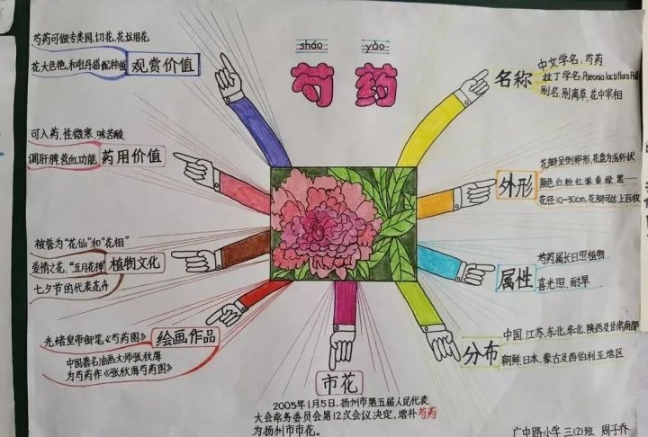 sháo yào
芍药
芍药可做专类园、切花、花坛用花
花大色艳,和牡丹搭配种植
观赏价值
可入药、性微寒、味苦酸
调肝脾营血功能
药用价值
被誉为“花仙”和“花相”
爱情之花,“五月花神”
七夕节的代表花卉
植物文化
光绪皇帝御笔《芍药图》
中国著名油画大师张秋海
为芍药作《张秋海芍药图》
绘画作品
市花
2005年1月5日,扬州市第五届人民代表
大会常务委员会第12次会议决定,增补芍药
为扬州市市花。
名称
中文学名:芍药
拉丁学名:Paeonia lactiflora Pall
别名:别离草、花中宰相
外形
花瓣呈倒卵形,花盘为浅杯状
颜色白粉红紫黄绿黑
花径10-30cm,花瓣可达上百枚
属性
芍药属长日照植物
喜光照、耐旱
分布
中国:江苏、东北、华北、陕西及甘肃南部
朝鲜、日本、蒙古及西伯利亚地区
广中路小学 三(2)班 周子乔